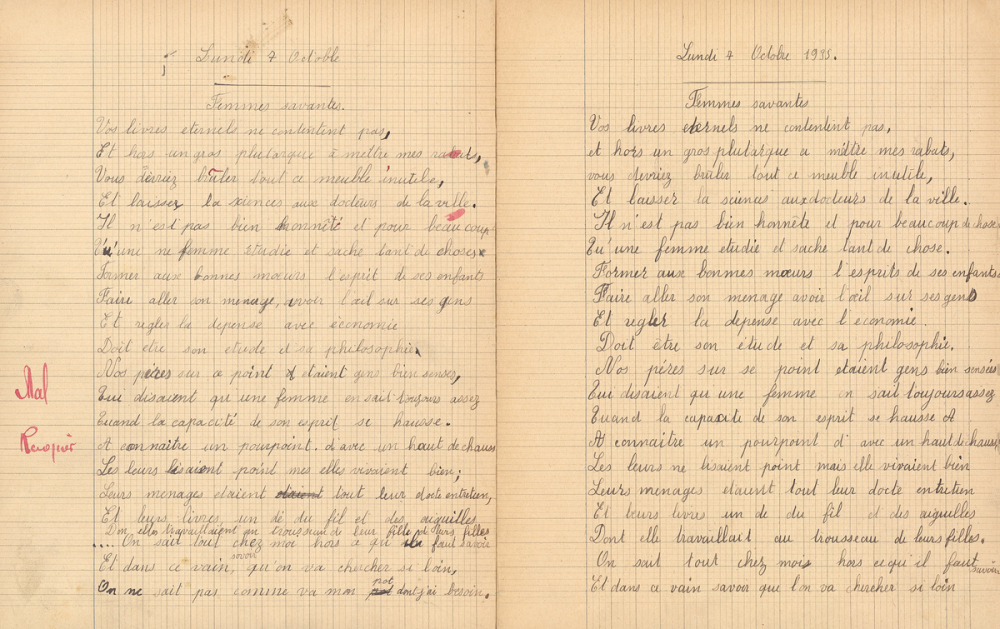 Lundi 7 Octobre
Femmes savantes.
Vos livres eternels ne contentent pas,
Et hors un gros plutarque à mettre mes rabats,
Vous devriez brûler tout ce meuble inutile,
Et laisser la sciences aux docteurs de la ville.
Il n'est pas bien honnêté et pour beaucoup
Qu'une ne femme etudie et sache tant de choses
Former aux bonnes mœurs l'esprit de ses enfants
Faire aller son menage, avoir l'œil sur ses gens
Et regler la depense avec économie
Doit etre son etude et sa philosophie
Nos pères sur ce point etaient gens bien senses,
Qui disaient qu une femme en sait toujours assez
Mal
Quand la capacité de son esprit se hausse.
A connaître un pourpoint. d avec un haut de chauss
Recopier
Les leurs lisaient point mes elles vivaient bien;
Leurs menages etaient etaient tout leur docte entretien,
Et leurs livres un dé du fil et des aiguilles
Don elles travaillaient au trousseau de leur fille et leurs filles
.... On sait tout chez moi hors ce qui faut savoir
savoir
Et dans ce vain, qu'on va chercher si loin,
pot
On ne sait pas comme va mon dont j'ai besoin.
Lundi 7 Octobre 1935.
Femmes savantes
Vos livres eternels ne contentent pas,
et hors un gros plutarque a mettre mes rabats,
vous devriez brûler tout ce meuble inutile,
Et laisser la sciences aux docteurs de la ville.
Il n'est pas bien honnête et pour beaucoup de chose
Qu'une femme etudie et sache tant de chose.
Former aux bonmes mœurs l'esprits de ses enfants
Faire aller son menage avoir l'œil sur ses gens
Et regler la depense avec l'economie.
Doit être son étude et sa philosophie.
Nos pères sur se point etaient gens bien sensées
Qui disaient que une femme en sait toujours assez
Quand la capacite de son esprit se hausse A
A connaître un pourpoint d' avec un haut de chauss
Les leurs ne lisaient point mais elle vivaient bien
Leurs menages etaient tout leur docte entretien
Et leurs livre un de du fil et des aiguilles
Dont elle travaillait au trousseau de leurs filles.
On sait tout chez mois hors ce qu il faut savoir
Et dans ce vain savoir que l'on va chercher si loin